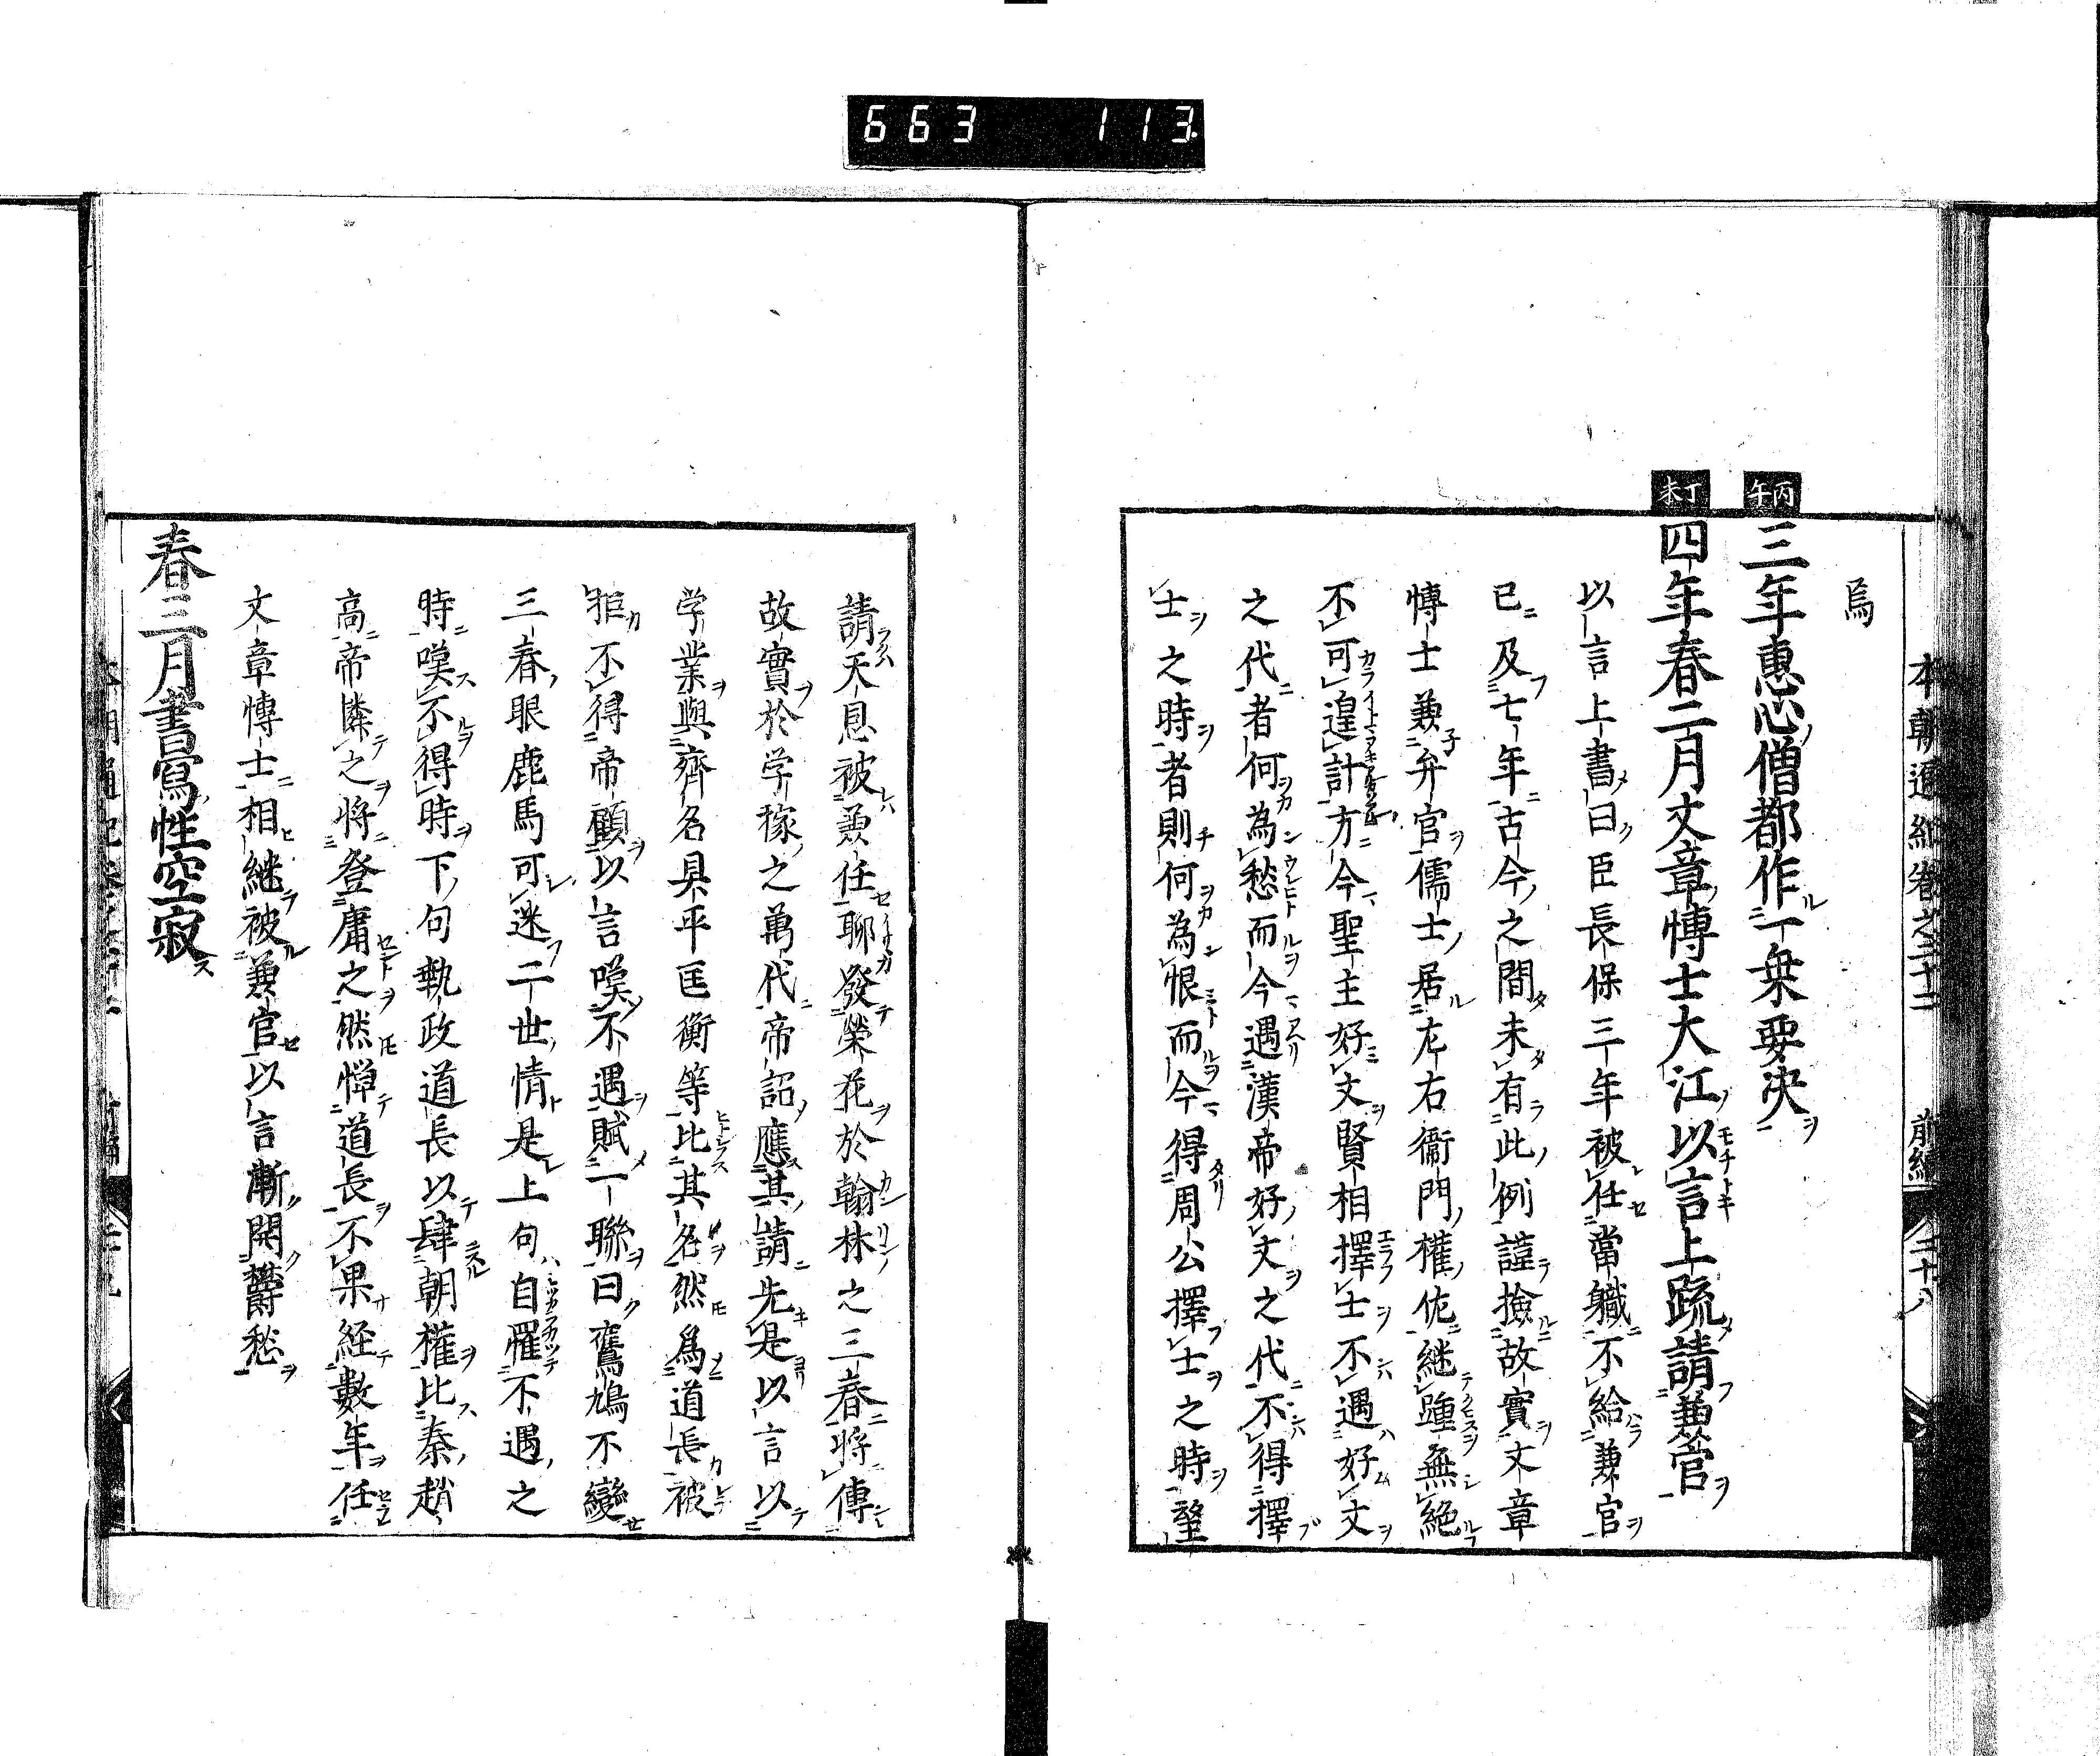 663 113
本朝通紀卷之二十二 前編 二十八
焉
丙午 三年惠心僧都作一乗要决
丁未 四年春二月文章博士大江以言上疏請兼官
以言上書曰臣長保三年被任當職不給兼官
已及七年古今之間未有此例謹撿故實文章
博士兼弁官儒士居左右衞門權佐継踵無絶
不可遑計方今聖主好文賢相擇士不遇好文
之代者何為愁而今遇漢帝好文之代不得擇
士之時者則何為恨而今得周公擇士之時望
請天恩被兼任聊發榮花於翰林之三春將傳
故實於学稼之萬代帝詔應其請先是以言以
学業與齊名具平匡衡等比其名然爲道長被
拒不得帝顧以言嘆不遇賦一聯曰鷹鳩不變
三春眼鹿馬可迷二世情是上句自罹不遇之
時嘆不得時下句執政道長以肆朝權比秦趙
高帝憐之将登庸之然憚道長不果経數年任
文章博士相継被兼官以言漸開欝愁
春三月書寫性空寂